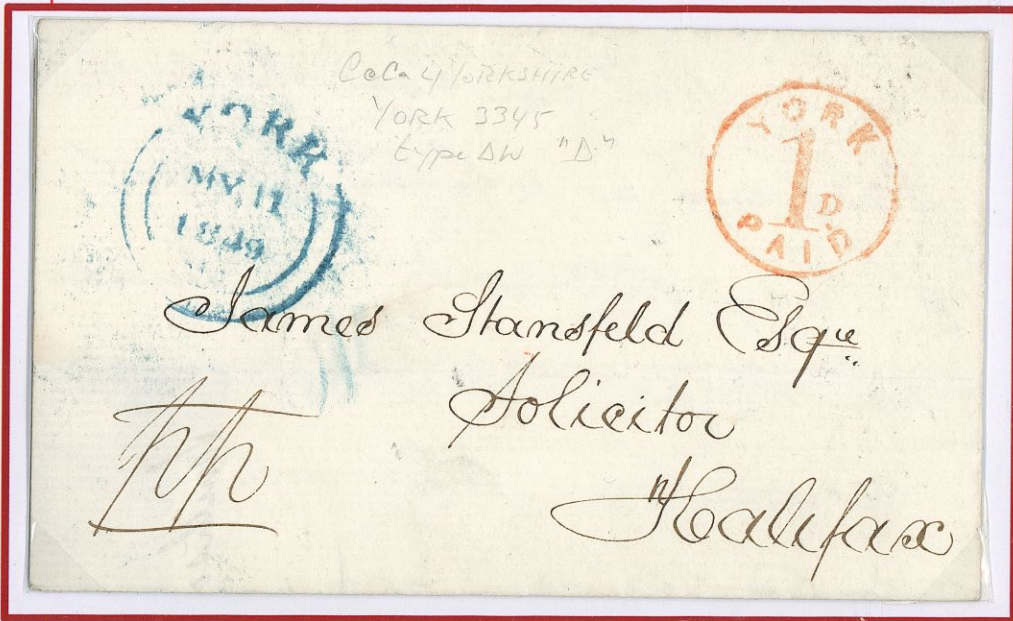 YORKSHIRE
YORK 3345
type DW "D"
YORK
MY. 11
1849
YORK
1D.
PAID
James Stansfeld Esqre
Solicitor
Halifax
pp